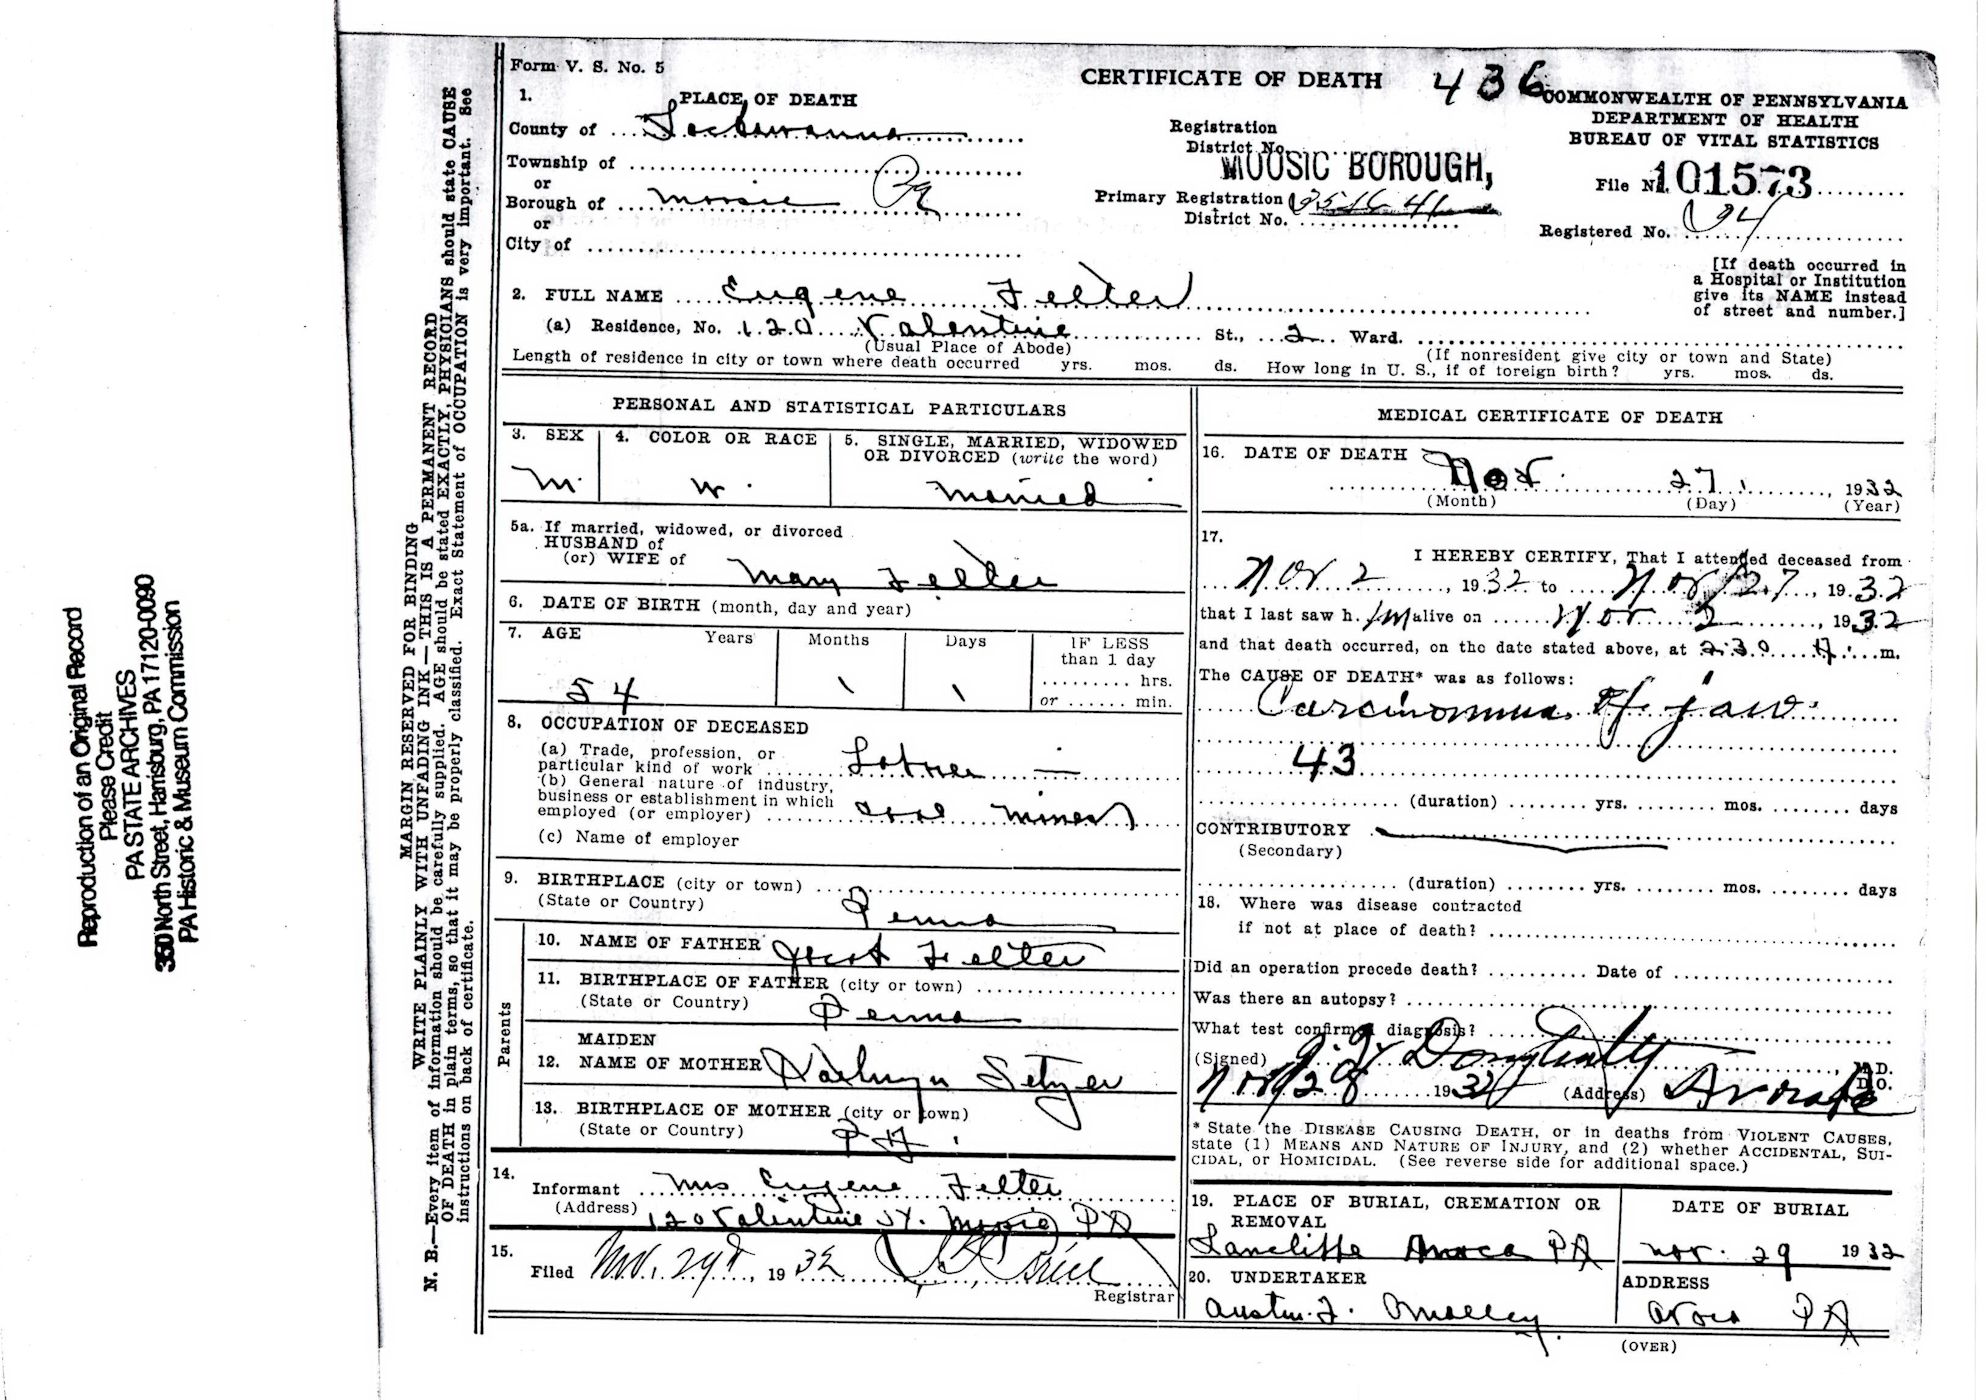 Reproduction of an Original Record
Please Credit
PA STATE ARCHIVES
350 North Street, Harrisburg, PA 17120-0090
PA Historic & Museum Commission
MARGIN RESERVED FOR BINDING
WRITE PLAINLY WITH UNFADING INK—THIS IS A PERMANENT RECORD
N. B.—Every item of information should be carefully supplied. AGE should be stated EXACTLY, PHYSICIANS should state CAUSE
OF DEATH in plain terms, so that it may be properly classified. Exact Statement of OCCUPATION is very important. See
instructions on back of certificate.
Form V. S. No. 5
CERTIFICATE OF DEATH 436
COMMONWEALTH OF PENNSYLVANIA
DEPARTMENT OF HEALTH
BUREAU OF VITAL STATISTICS
1. PLACE OF DEATH
County of Lackawanna
Township of
or
Borough of Moosic Pa
or
City of
Registration
District No.
MOOSIC BOROUGH,
Primary Registration
District No.
File No. 101573
Registered No. 94
[If death occurred in
a Hospital or Institution
give its NAME instead
of street and number.]
2. FULL NAME Eugene Felter
(a) Residence, No. 120 Valentine St., 2 Ward.
(Usual Place of Abode) (If nonresident give city or town and State)
Length of residence in city or town where death occurred yrs. mos. ds. How long in U. S., if of foreign birth? yrs. mos. ds.
PERSONAL AND STATISTICAL PARTICULARS
3. SEX
M.
4. COLOR OR RACE
W.
5. SINGLE, MARRIED, WIDOWED
OR DIVORCED (write the word)
Married
5a. If married, widowed, or divorced
HUSBAND of
(or) WIFE of Mary Felter
6. DATE OF BIRTH (month, day and year)
7. AGE Years Months Days IF LESS
than 1 day
hrs.
or min.
54 \ \
8. OCCUPATION OF DECEASED
(a) Trade, profession, or
particular kind of work Laborer
(b) General nature of industry,
business or establishment in which
employed (or employer) coal mines
(c) Name of employer
9. BIRTHPLACE (city or town)
(State or Country) Penna
Parents
10. NAME OF FATHER Felter
11. BIRTHPLACE OF FATHER (city or town)
(State or Country) Penna
MAIDEN
12. NAME OF MOTHER Kathryn Setzer
13. BIRTHPLACE OF MOTHER (city or town)
(State or Country) PA.
14.
Informant Mrs Eugene Felter
(Address) 120 Valentine St. Moosic PA
15.
Filed Nov. 29th, 1932
Registrar
MEDICAL CERTIFICATE OF DEATH
16. DATE OF DEATH
Nov. 27, 1932
(Month) (Day) (Year)
17.
I HEREBY CERTIFY, That I attended deceased from
Nov 2, 1932 to Nov 27, 1932
that I last saw h im alive on Nov 2, 1932
and that death occurred, on the date stated above, at 2:30 A. m.
The CAUSE OF DEATH* was as follows:
Carcinomma of jaw.
43
(duration) yrs. mos. days
CONTRIBUTORY
(Secondary)
(duration) yrs. mos. days
18. Where was disease contracted
if not at place of death?
Did an operation precede death? Date of
Was there an autopsy?
What test confirmed diagnosis?
(Signed) Dougherty M.D.
D.O.
Nov 28 1932 (Address) Avoca Pa
* State the DISEASE CAUSING DEATH, or in deaths from VIOLENT CAUSES,
state (1) MEANS AND NATURE OF INJURY, and (2) whether ACCIDENTAL, SUI-
CIDAL, or HOMICIDAL. (See reverse side for additional space.)
19. PLACE OF BURIAL, CREMATION OR
REMOVAL
Langcliffe Avoca PA
DATE OF BURIAL
Nov. 29 1932
20. UNDERTAKER
Austin J. Omalley
ADDRESS
Avoca PA
(OVER)